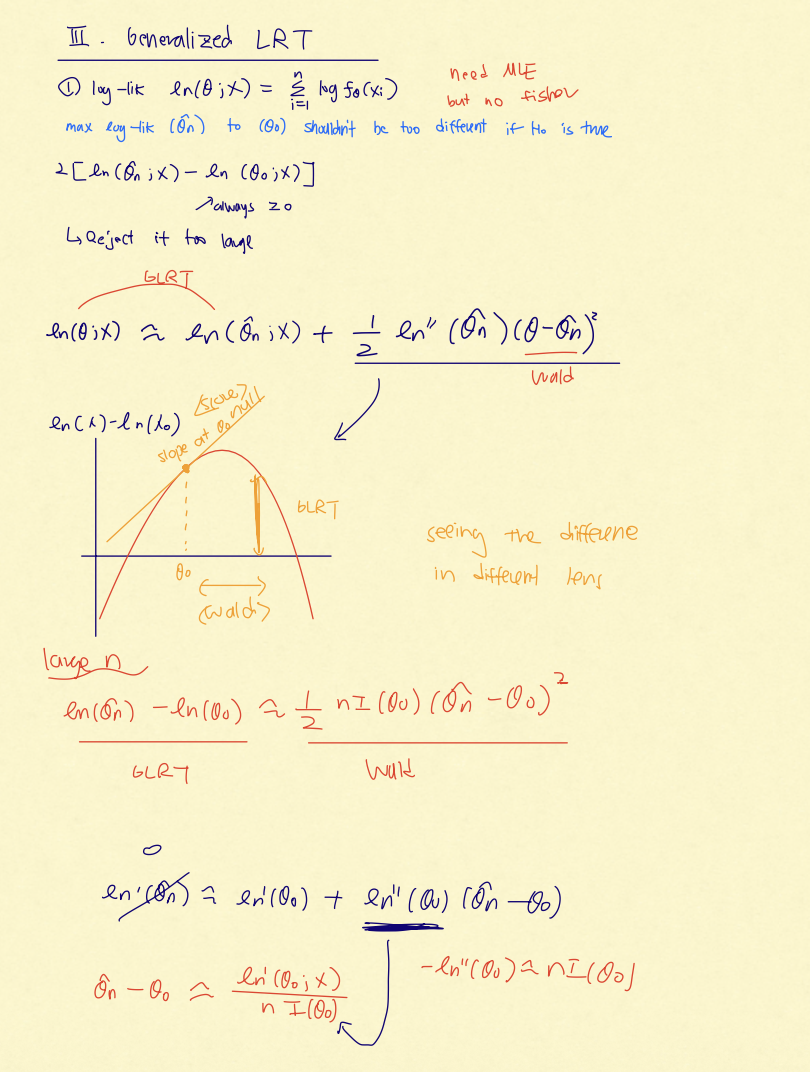 III. Generalized LRT
① log-lik ln(θ;X) = Σ_{i=1}^{n} log fθ(xi)
need MLE
but no fisher
max log-lik (θ̂n) to (θ0) shouldn't be too different if Ho is true
2[ln(θ̂n;X) - ln(θ0;X)]
↗always ≥0
↳ Reject if too large
GLRT
ln(θ;X) ≈ ln(θ̂n;X) + 1/2 ln''(θ̂n)(θ-θ̂n)²
Wald
ln(λ)-ln(λ0)
<score>
slope at θ0 null
GLRT
θ0
<wald>
seeing the differene
in different lens
large n
ln(θ̂n) - ln(θ0) ≈ 1/2 nI(θ0)(θ̂n - θ0)²
GLRT
Wald
0
ln'(θ̂n) ≈ ln'(θ0) + ln''(θ0)(θ̂n - θ0)
θ̂n - θ0 ≈ ln'(θ0;X) / n I(θ0)
-ln''(θ0) ≈ nI(θ0)